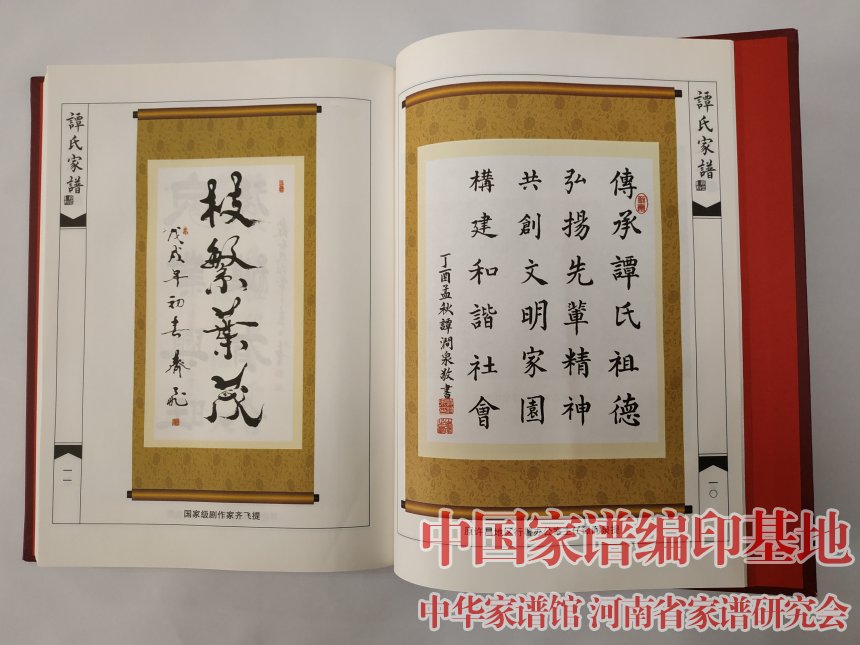 譚氏家譜
傳承譚氏祖德
弘揚先輩精神
共創文明家園
構建和諧社會
丁酉孟秋譚澗泉敬書
一〇
譚氏家譜
枝繁葉茂
戊戌年初春齊飛
国家级剧作家齐飞提
一一
中国家谱编印基地
中华家谱馆 河南省家谱研究会